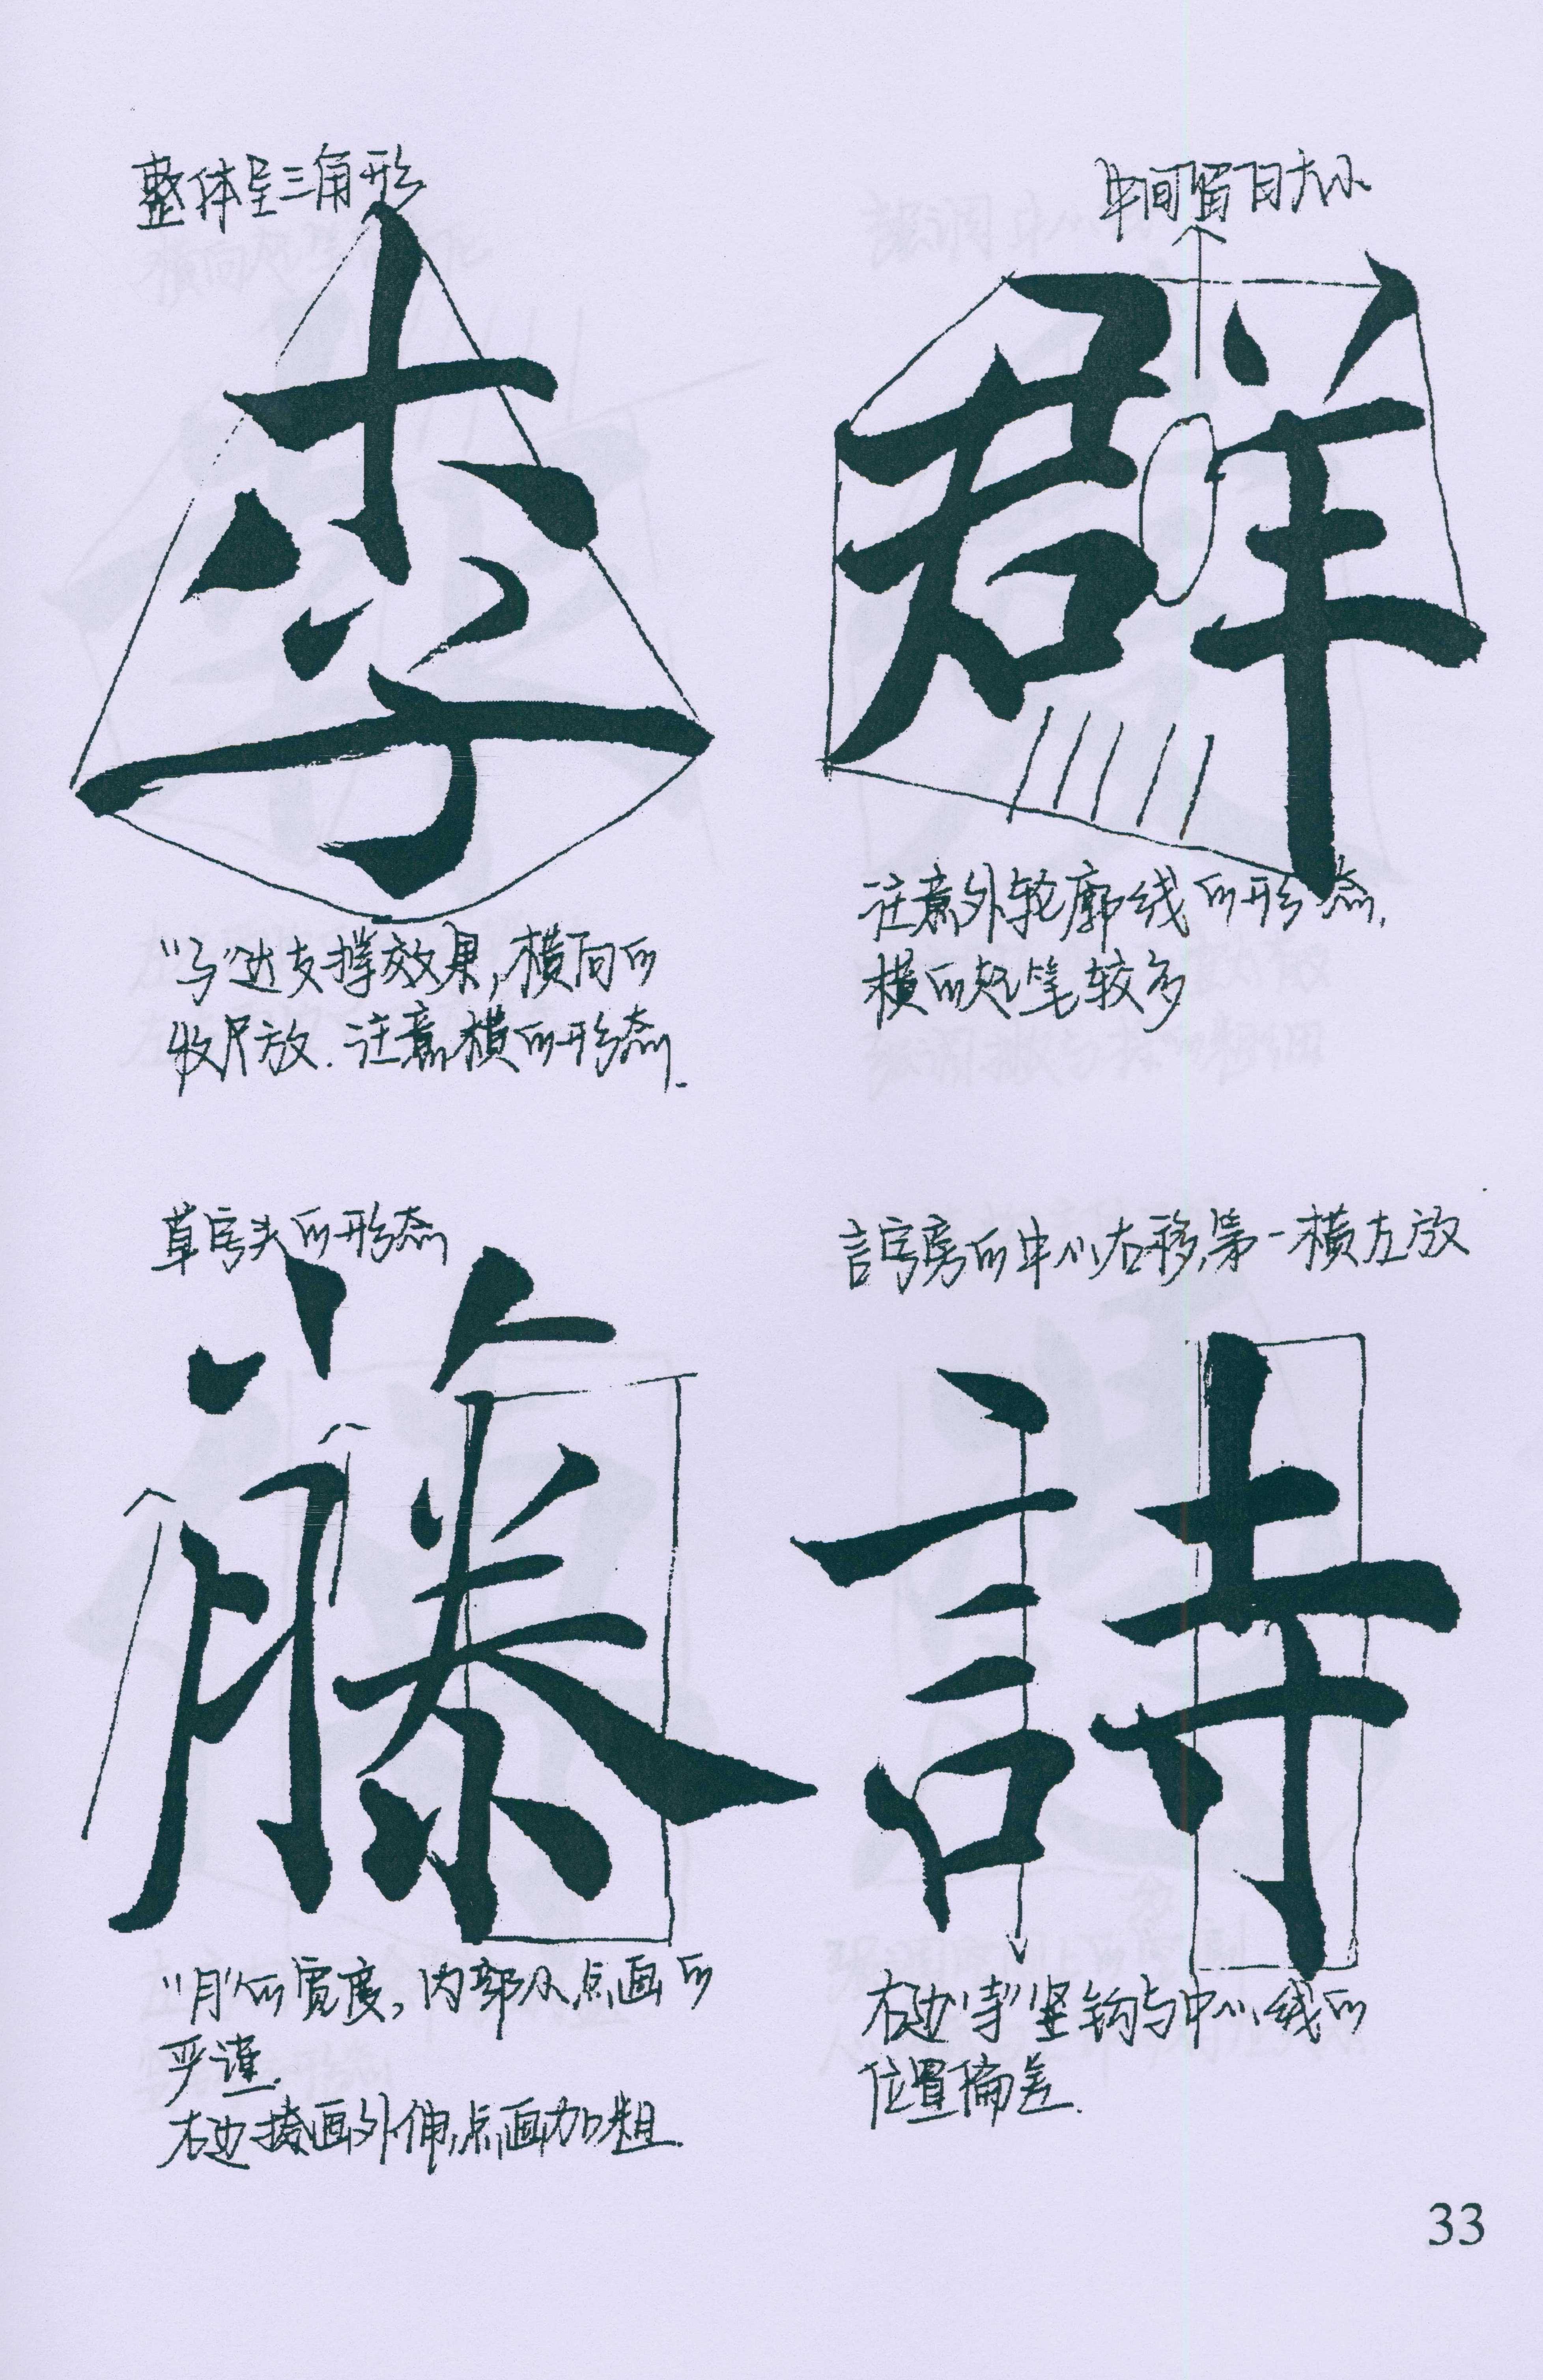 整体呈三角形
李
横向的
收尽放.注意横的形态.
中间留白大小
群
注意外轮廓线的形态,
横的起笔较多
草字头的形态
藤
"月"的宽度,内部从点画的
严谨.
右边捺画外伸,点画加粗.
言字旁的中心右移,第一横左放
詩
右边"寺"竖钩与中心线的
位置偏差.
33